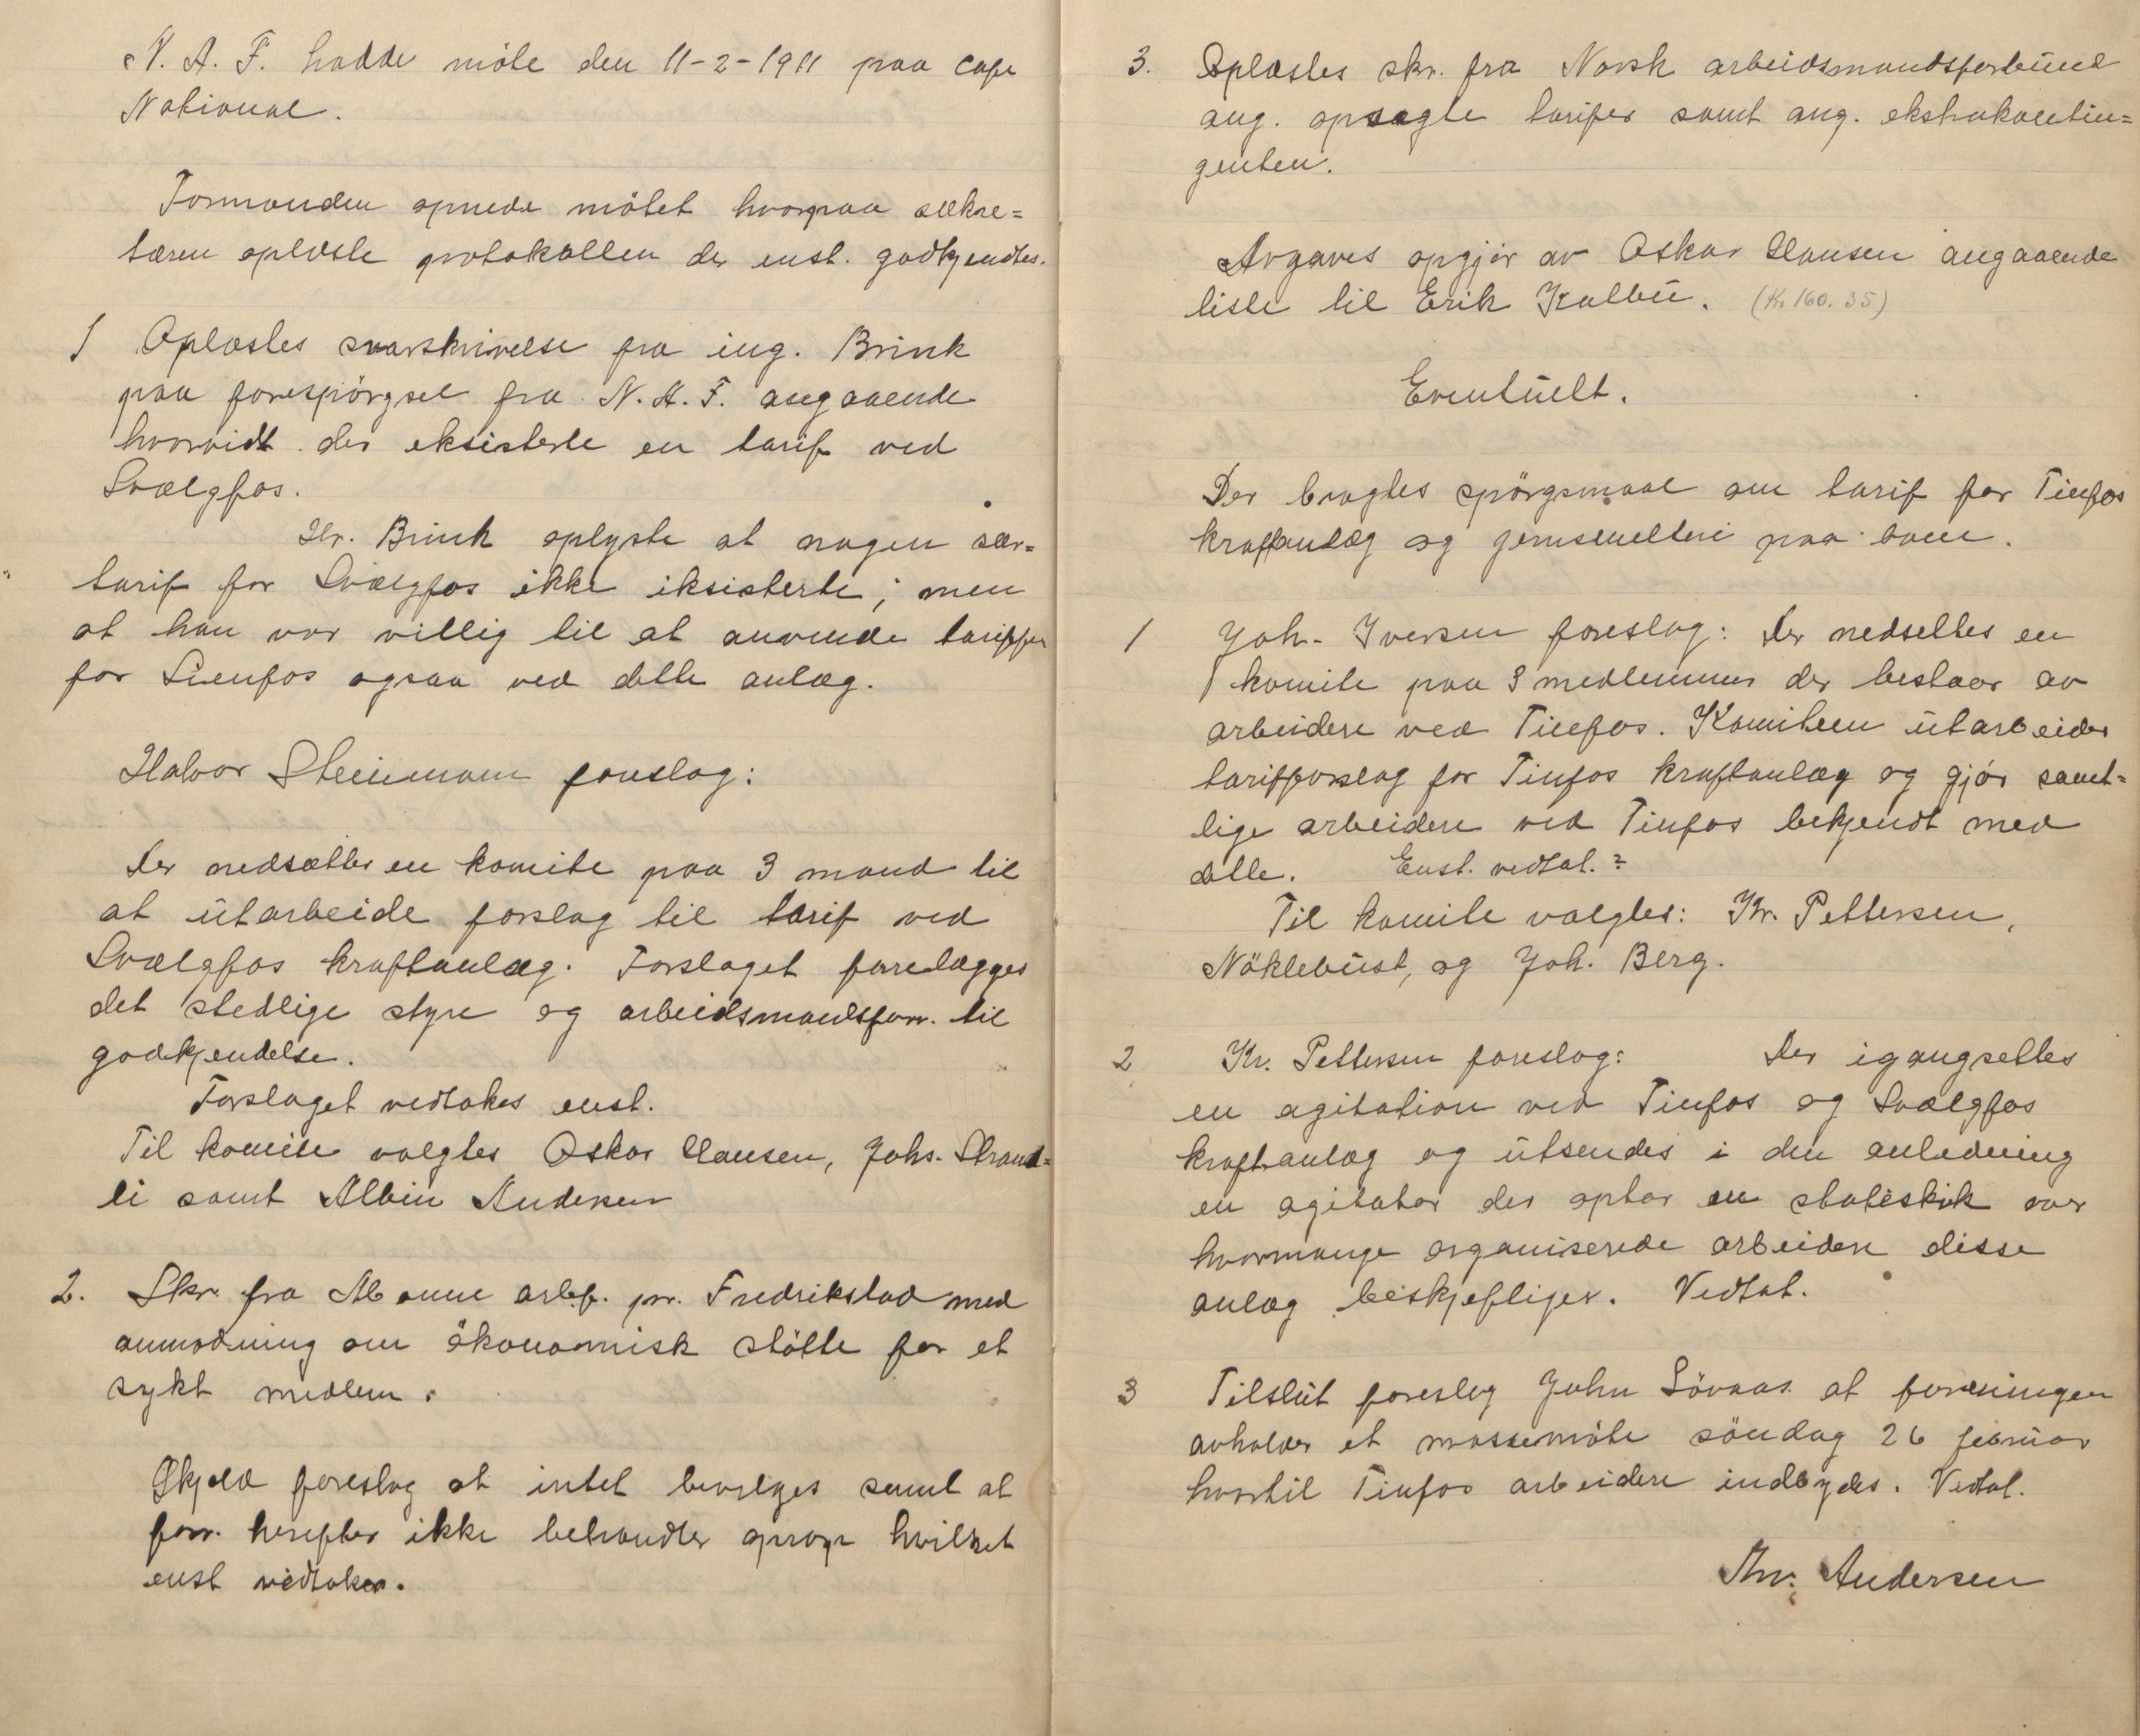 N. A. F. hadde möte den 11-2-1911 paa Cafe
National.
Formanden opnede mötet hvorpaa sekre=
tæren oplæste protokollen der enst. godkjendtes.
1 Oplæstes svarskrivelse fra ing. Brink
paa forespörgsel fra N. A. F. angaaende
hvorvidt der eksisterte en tarif ved
Svælgfos.
Hr. Brink oplyste at nogen sær=
tarif for Svælgfos ikke iksisterte; men
at han var villig til at anvende tariffen
for Lienfos ogsaa ved dette anlæg.
Halvor Steinmann foreslog:
Der nedsættes en komite paa 3 mand til
at utarbeide forslag til tarif ved
Svælgfos kraftanlæg. Forslaget forelægges
det stedlige styre og arbeidsmandsforr. til
godkjendelse.
Forslaget vedtokes enst.
Til komite valgtes Oskar Hansen, Johs. Strand=
li samt Albin Andersen
2. Skr. fra arb.f. pr. Fredrikstad med
anmodning om ökonomisk stötte for et
sykt medlem.
Skjeld foreslog at intet bevilges samt at
forr. herefter ikke behandler oprop hvilket
enst vedtokes.
3. Oplæstes skr. fra Norsk arbeidsmandsforbund
ang. opsagte tarifer samt ang. ekstrakontin=
genten.
Avgaves opgjör av Oskar Hansen angaaende
liste til Erik Kalbu. (Kr. 160.35)
Eventuelt.
Der bragtes spörgsmaal om tarif for Tinfos
kraftanlæg og jernsmelteri paa bane.
1 Joh. Iversen foreslog: Der nedsettes en
komite paa 3 medlemmer der bestaar av
arbeidere ved Tinfos. Komiteen utarbeider
tarifforslag for Tinfos kraftanlæg og gjör samt=
lige arbeidere ved Tinfos bekjendt med
dette. Enst. vedtat.?
Til komite valgtes: Kr. Pettersen,
Nöklebust, og Joh. Berg.
2 Kr. Pettersen foreslog: Der igangsettes
en agitation ved Tinfos og Svælgfos
kraftanlæg og utsendes i den anledning
en agitator der optar en statistik over
hvormange organiserede arbeidere disse
anlæg beskjeftiger. Vedtat.
3 Tilslut foreslog John Lövaas at foreningen
avholder et massemöte söndag 26 februar
hvortil Tinfos arbeidere indbydes. Vedtat.
Thv. Andersen